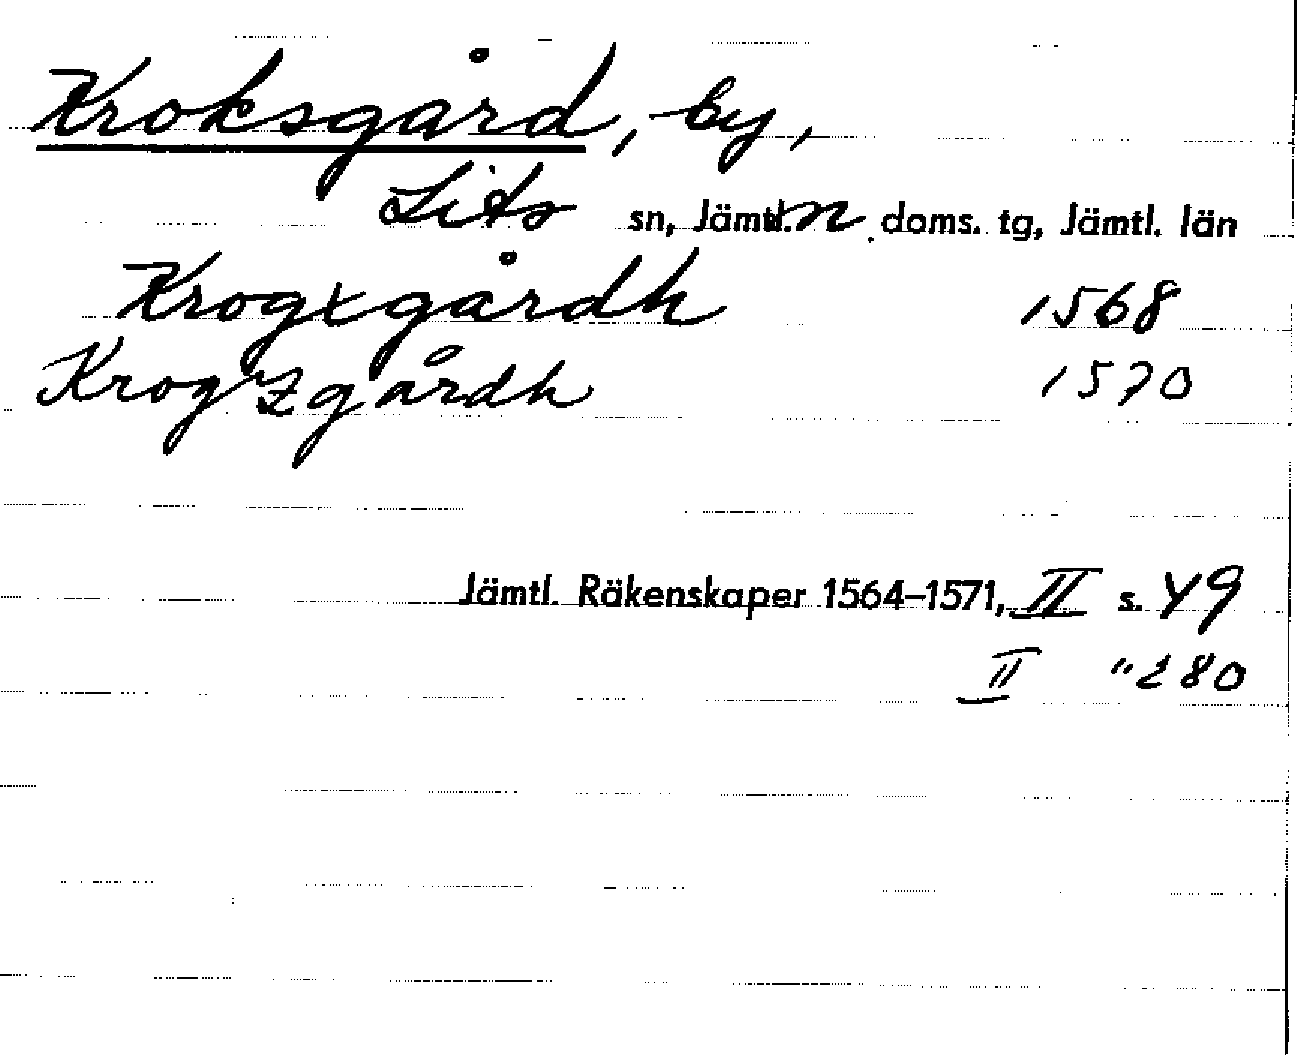 Kroksgård, by,
Lits sn, Jämtl. n doms. tg, Jämtl. län
Krogxgårdh 1568
Krogzgårdh 1570
Jämtl. Räkenskaper 1564–1571, II s. 49
II " 280